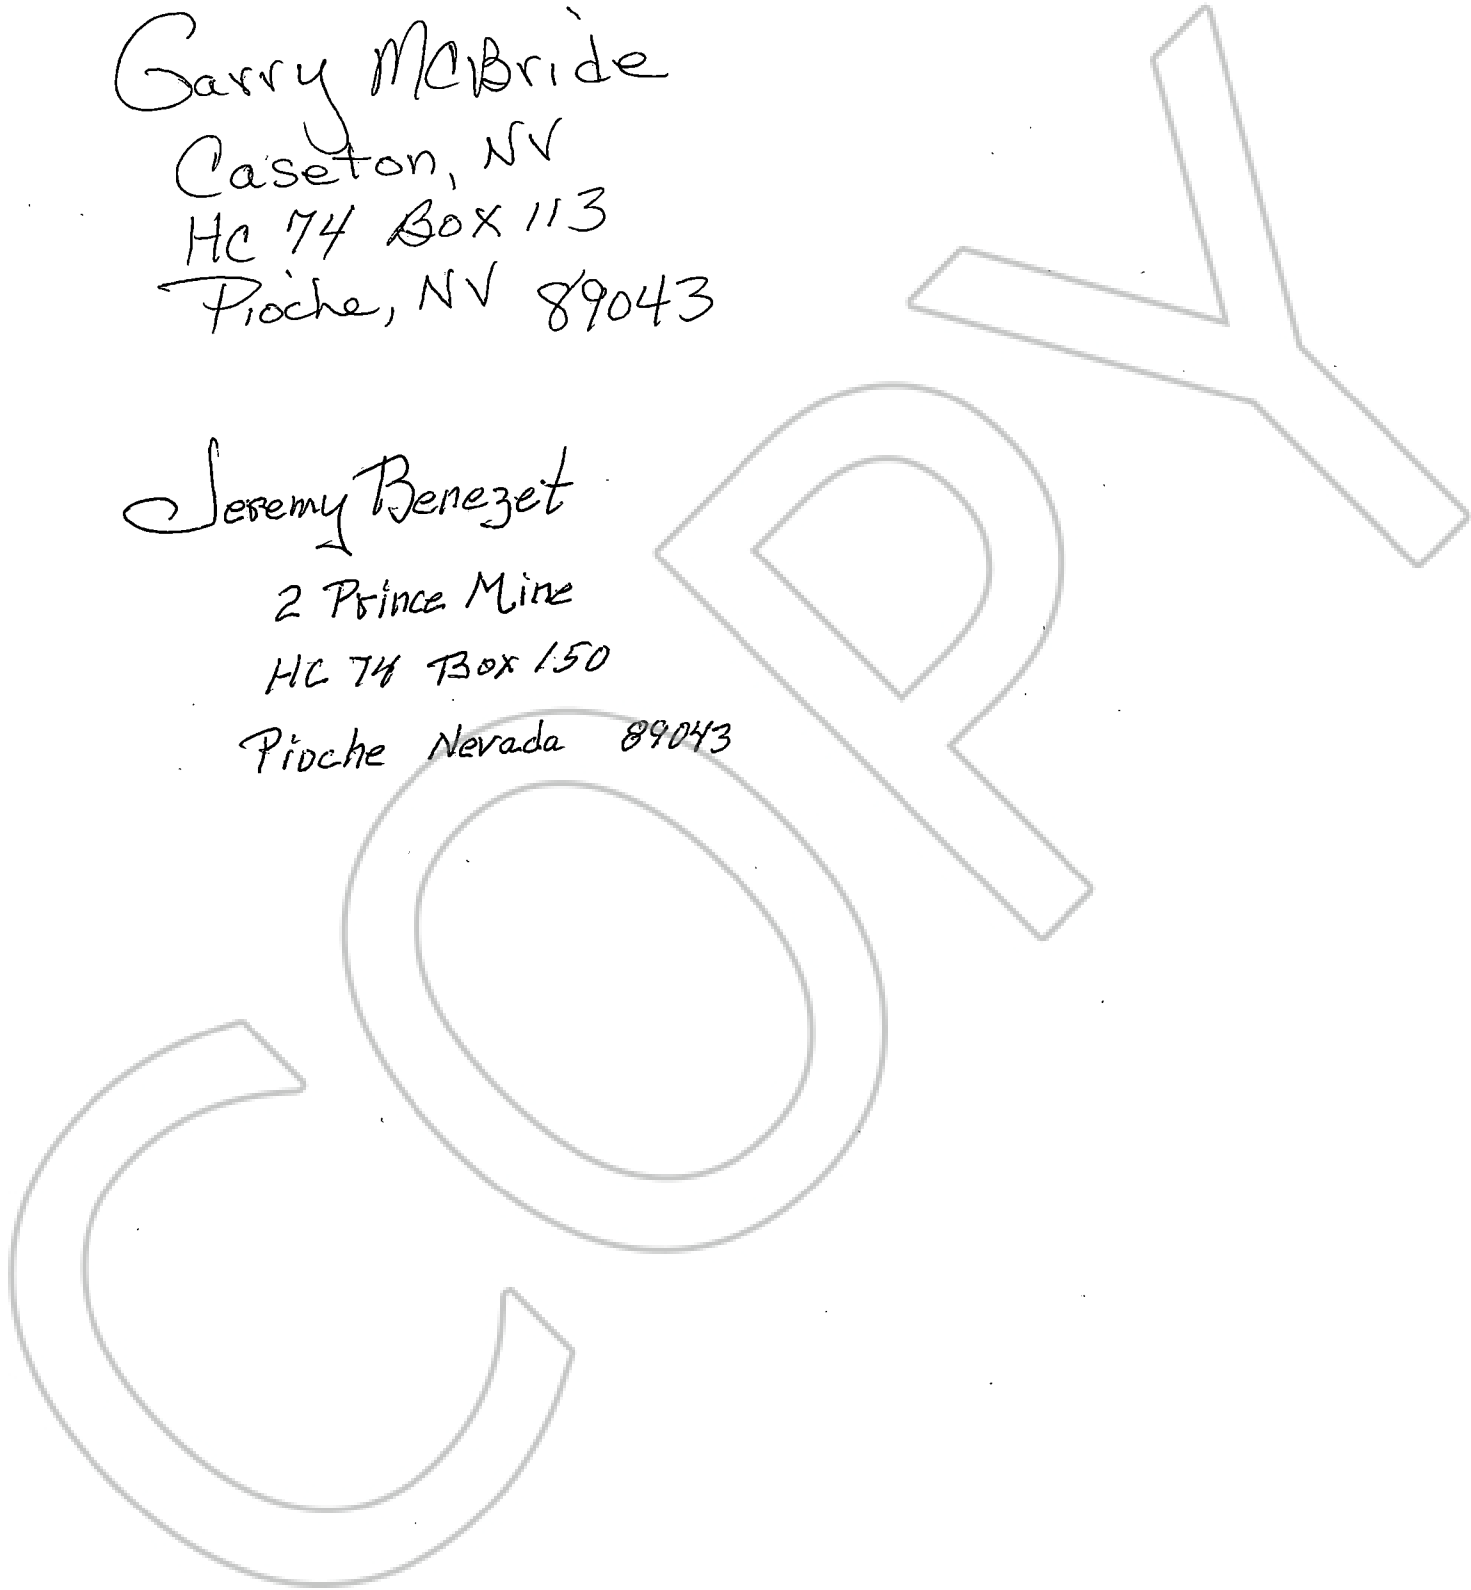 Garry McBride
Caseton, NV
HC 74 Box 113
Pioche, NV 89043
Jeremy Benezet
2 Prince Mine
HC 74 Box 150
Pioche Nevada 89043
COPY